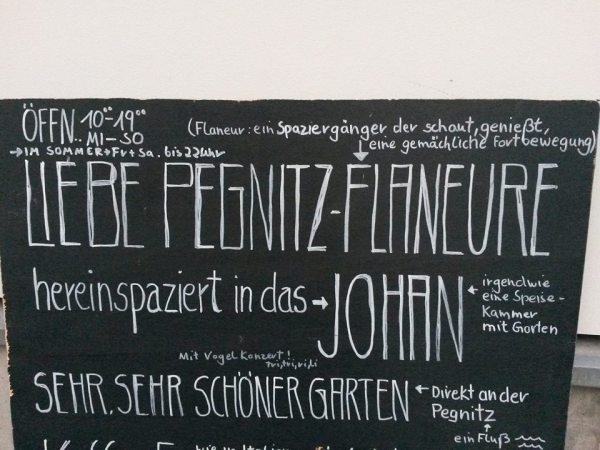 ÖFFN. 10⁰⁰-19⁰⁰
MI-SO
→IM SOMMER→Fr+Sa. bis 22 Uhr
(Flaneur: ein Spaziergänger der schaut, genießt,
eine gemächliche Fortbewegung)
LIEBE PEGNITZ-FLANEURE
hereinspaziert in das → JOHAN
← irgendwie
eine Speise-
Kammer
mit Garten
Mit Vogel Konzert!
tri,tri,ri,li
SEHR, SEHR SCHÖNER GARTEN
← Direkt an der
Pegnitz
ein Fluß